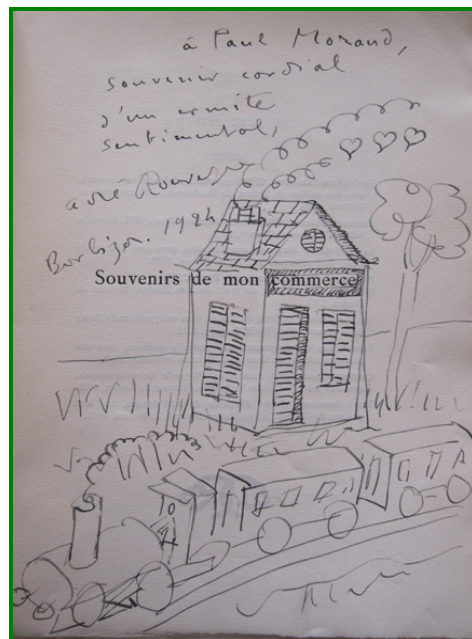 à Paul Morand,
souvenir cordial
d'un ermite
sentimental,
andré Rouveyre
Barbizon. 1924
Souvenirs de mon commerce